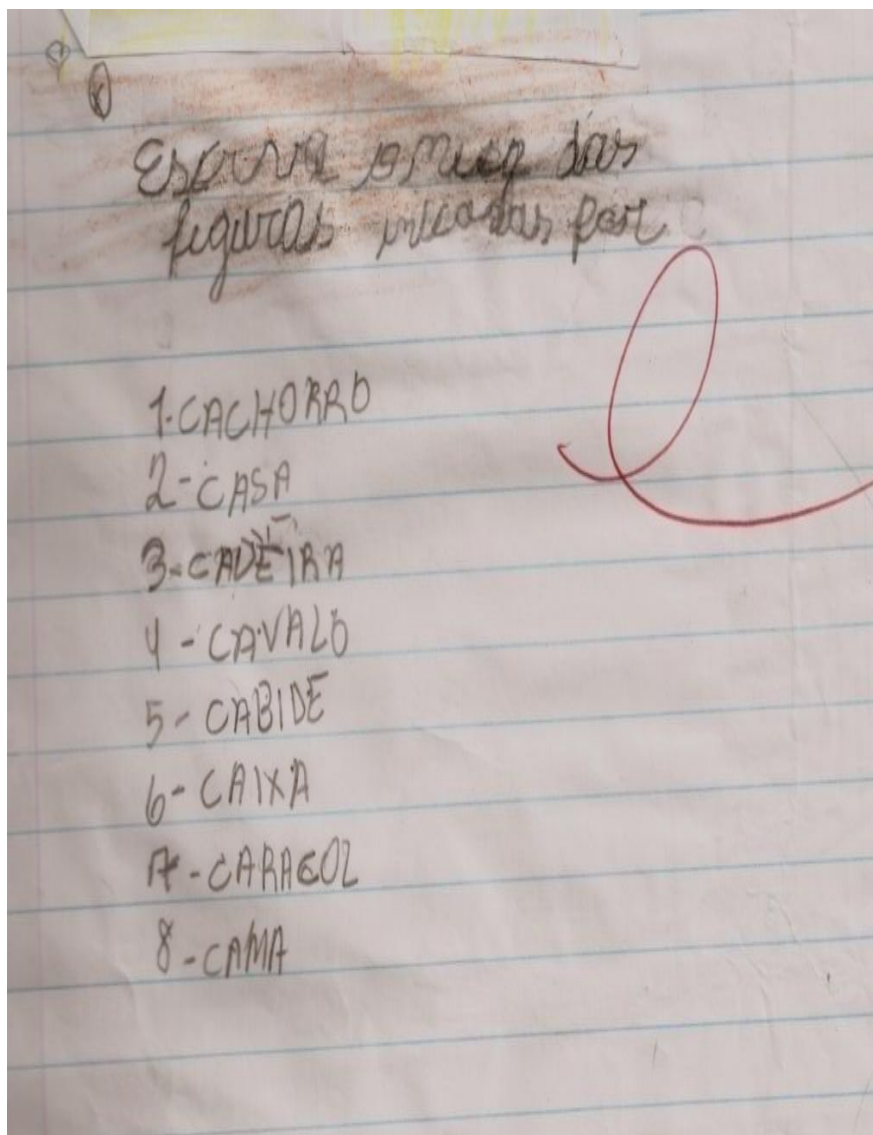 Escreva das
figuras por
1-CACHORRO
2-CASA
3-CADEIRA
4-CAVALO
5-CABIDE
6-CAIXA
7-CARACOL
8-CAMA